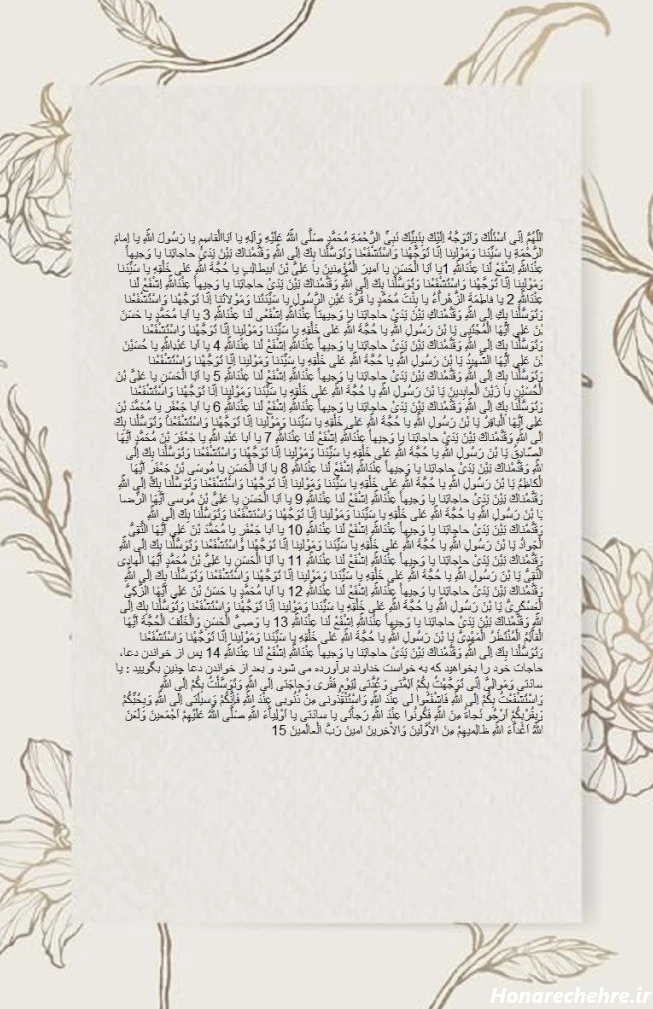 اَللّهُمَّ اِنّی اَسْئَلُكَ وَاَتَوَجَّهُ اِلَيْكَ بِنَبِيِّكَ نَبِیِّ الرَّحْمَةِ مُحَمَّدٍ صَلَّی اللّهُ عَلَيْهِ وَآلِهِ يا اَبَاالْقاسِمِ يا رَسُولَ اللّهِ يا اِمامَ
الرَّحْمَةِ يا سَيِّدَنا وَمَوْلينا اِنّا تَوَجَّهْنا وَاسْتَشْفَعْنا وَتَوَسَّلْنا بِكَ اِلَی اللّهِ وَقَدَّمْناكَ بَيْنَ يَدَیْ حاجاتِنا يا وَجيهاً
عِنْدَاللّهِ اِشْفَعْ لَنا عِنْدَاللّهِ 1يا اَبَا الْحَسَنِ يا اَميرَ الْمُؤْمِنينَ يا عَلِیَّ بْنَ اَبيطالِبٍ يا حُجَّةَ اللّهِ عَلی خَلْقِهِ يا سَيِّدَنا
وَمَوْلينا اِنّا تَوَجَّهْنا وَاسْتَشْفَعْنا وَتَوَسَّلْنا بِكَ اِلَی اللّهِ وَقَدَّمْناكَ بَيْنَ يَدَیْ حاجاتِنا يا وَجيهاً عِنْدَاللّهِ اِشْفَعْ لَنا
عِنْدَاللّهِ 2 يا فاطِمَةَ الزَّهْراَّءُ يا بِنْتَ مُحَمَّدٍ يا قُرَّةَ عَيْنِ الرَّسُولِ يا سَيِّدَتَنا وَمَوْلاتَنا اِنّا تَوَجَّهْنا وَاسْتَشْفَعْنا
وَتَوَسَّلْنا بِكِ اِلَی اللّهِ وَقَدَّمْناكِ بَيْنَ يَدَیْ حاجاتِنا يا وَجيهَةً عِنْدَاللّهِ اِشْفَعی لَنا عِنْدَاللّهِ 3 يا اَبا مُحَمَّدٍ يا حَسَنَ
بْنَ عَلِیٍّ اَيُّهَا الْمُجْتَبی يَا بْنَ رَسُولِ اللّهِ يا حُجَّةَ اللّهِ عَلی خَلْقِهِ يا سَيِّدَنا وَمَوْلينا اِنّا تَوَجَّهْنا وَاسْتَشْفَعْنا
وَتَوَسَّلْنا بِكَ اِلَی اللّهِ وَقَدَّمْناكَ بَيْنَ يَدَیْ حاجاتِنا يا وَجيهاً عِنْدَاللّهِ اِشْفَعْ لَنا عِنْدَاللّهِ 4 يا اَبا عَبْدِاللّهِ يا حُسَيْنَ
بْنَ عَلِیٍّ اَيُّهَا الشَّهيدُ يَا بْنَ رَسُولِ اللّهِ يا حُجَّةَ اللّهِ عَلی خَلْقِهِ يا سَيِّدَنا وَمَوْلينا اِنّا تَوَجَّهْنا وَاسْتَشْفَعْنا
وَتَوَسَّلْنا بِكَ اِلَی اللّهِ وَقَدَّمْناكَ بَيْنَ يَدَیْ حاجاتِنا يا وَجيهاً عِنْدَاللّهِ اِشْفَعْ لَنا عِنْدَاللّهِ 5 يا اَبَا الْحَسَنِ يا عَلِیَّ بْنَ
الْحُسَيْنِ يا زَيْنَ الْعابِدينَ يَا بْنَ رَسُولِ اللّهِ يا حُجَّةَ اللّهِ عَلی خَلْقِهِ يا سَيِّدَنا وَمَوْلينا اِنّا تَوَجَّهْنا وَاسْتَشْفَعْنا
وَتَوَسَّلْنا بِكَ اِلَی اللّهِ وَقَدَّمْناكَ بَيْنَ يَدَیْ حاجاتِنا يا وَجيهاً عِنْدَاللّهِ اِشْفَعْ لَنا عِنْدَاللّهِ 6 يا اَبا جَعْفَرٍ يا مُحَمَّدَ بْنَ
عَلِیٍّ اَيُّهَا الْباقِرُ يَا بْنَ رَسُولِ اللّهِ يا حُجَّةَ اللّهِ عَلی خَلْقِهِ يا سَيِّدَنا وَمَوْلينا اِنّا تَوَجَّهْنا وَاسْتَشْفَعْنا وَتَوَسَّلْنا بِكَ
اِلَی اللّهِ وَقَدَّمْناكَ بَيْنَ يَدَیْ حاجاتِنا يا وَجيهاً عِنْدَاللّهِ اِشْفَعْ لَنا عِنْدَاللّهِ 7 يا اَبا عَبْدِ اللّهِ يا جَعْفَرَ بْنَ مُحَمَّدٍ اَيُّهَا
الصّادِقُ يَا بْنَ رَسُولِ اللّهِ يا حُجَّةَ اللّهِ عَلی خَلْقِهِ يا سَيِّدَنا وَمَوْلينا اِنّا تَوَجَّهْنا وَاسْتَشْفَعْنا وَتَوَسَّلْنا بِكَ اِلَی
اللّهِ وَقَدَّمْناكَ بَيْنَ يَدَیْ حاجاتِنا يا وَجيهاً عِنْدَاللّهِ اِشْفَعْ لَنا عِنْدَاللّهِ 8 يا اَبَا الْحَسَنِ يا مُوسَی بْنَ جَعْفَرٍ اَيُّهَا
الْكاظِمُ يَا بْنَ رَسُولِ اللّهِ يا حُجَّةَ اللّهِ عَلی خَلْقِهِ يا سَيِّدَنا وَمَوْلينا اِنّا تَوَجَّهْنا وَاسْتَشْفَعْنا وَتَوَسَّلْنا بِكَ اِلَی اللّهِ
وَقَدَّمْناكَ بَيْنَ يَدَیْ حاجاتِنا يا وَجيهاً عِنْدَاللّهِ اِشْفَعْ لَنا عِنْدَاللّهِ 9 يا اَبَا الْحَسَنِ يا عَلِیَّ بْنَ مُوسی اَيُّهَا الرِّضا
يَا بْنَ رَسُولِ اللّهِ يا حُجَّةَ اللّهِ عَلی خَلْقِهِ يا سَيِّدَنا وَمَوْلينا اِنّا تَوَجَّهْنا وَاسْتَشْفَعْنا وَتَوَسَّلْنا بِكَ اِلَی اللّهِ
وَقَدَّمْناكَ بَيْنَ يَدَیْ حاجاتِنا يا وَجيهاً عِنْدَاللّهِ اِشْفَعْ لَنا عِنْدَاللّهِ 10 يا اَبا جَعْفَرٍ يا مُحَمَّدَ بْنَ عَلِیٍّ اَيُّهَا التَّقِیُّ
الْجَوادُ يَا بْنَ رَسُولِ اللّهِ يا حُجَّةَ اللّهِ عَلی خَلْقِهِ يا سَيِّدَنا وَمَوْلينا اِنّا تَوَجَّهْنا وَاسْتَشْفَعْنا وَتَوَسَّلْنا بِكَ اِلَی اللّهِ
وَقَدَّمْناكَ بَيْنَ يَدَیْ حاجاتِنا يا وَجيهاً عِنْدَاللّهِ اِشْفَعْ لَنا عِنْدَاللّهِ 11 يا اَبَا الْحَسَنِ يا عَلِیَّ بْنَ مُحَمَّدٍ اَيُّهَا الْهادِی
النَّقِیُّ يَا بْنَ رَسُولِ اللّهِ يا حُجَّةَ اللّهِ عَلی خَلْقِهِ يا سَيِّدَنا وَمَوْلينا اِنّا تَوَجَّهْنا وَاسْتَشْفَعْنا وَتَوَسَّلْنا بِكَ اِلَی اللّهِ
وَقَدَّمْناكَ بَيْنَ يَدَیْ حاجاتِنا يا وَجيهاً عِنْدَاللّهِ اِشْفَعْ لَنا عِنْدَاللّهِ 12 يا اَبا مُحَمَّدٍ يا حَسَنَ بْنَ عَلِیٍّ اَيُّهَا الزَّكِیُّ
الْعَسْكَرِیُّ يَا بْنَ رَسُولِ اللّهِ يا حُجَّةَ اللّهِ عَلی خَلْقِهِ يا سَيِّدَنا وَمَوْلينا اِنّا تَوَجَّهْنا وَاسْتَشْفَعْنا وَتَوَسَّلْنا بِكَ اِلَی
اللّهِ وَقَدَّمْناكَ بَيْنَ يَدَیْ حاجاتِنا يا وَجيهاً عِنْدَاللّهِ اِشْفَعْ لَنا عِنْدَاللّهِ 13 يا وَصِیَّ الْحَسَنِ وَالْخَلَفَ الْحُجَّةَ اَيُّهَا
الْقاَّئِمُ الْمُنْتَظَرُ الْمَهْدِیُّ يَا بْنَ رَسُولِ اللّهِ يا حُجَّةَ اللّهِ عَلی خَلْقِهِ يا سَيِّدَنا وَمَوْلينا اِنّا تَوَجَّهْنا وَاسْتَشْفَعْنا
وَتَوَسَّلْنا بِكَ اِلَی اللّهِ وَقَدَّمْناكَ بَيْنَ يَدَیْ حاجاتِنا يا وَجيهاً عِنْدَاللّهِ اِشْفَعْ لَنا عِنْدَاللّهِ 14 پس از خواندن دعا،
حاجات خود را بخواهید که به خواست خداوند برآورده می شود و بعد از خواندن دعا چنین بگویید : یا
سادَتی وَمَوالِیَّ اِنّی تَوَجَّهْتُ بِكُمْ اَئِمَّتی وَعُدَّتی لِيَوْمِ فَقْری وَحاجَتی اِلَی اللّهِ وَتَوَسَّلْتُ بِكُمْ اِلَی اللّهِ
وَاسْتَشْفَعْتُ بِكُمْ اِلَی اللّهِ فَاشْفَعُوا لی عِنْدَ اللّهِ وَاسْتَنْقِذُونی مِنْ ذُنُوبی عِنْدَ اللّهِ فَاِنَّكُمْ وَسيلَتی اِلَی اللّهِ وَبِحُبِّكُمْ
وَبِقُرْبِكُمْ اَرْجُو نَجاةً مِنَ اللّهِ فَكُونُوا عِنْدَ اللّهِ رَجاَّئی يا سادَتی يا اَوْلِياَّءَ اللّهِ صَلَّی اللّهُ عَلَيْهِمْ اَجْمَعينَ وَلَعَنَ
اللّهُ اَعْداَّءَ اللّهِ ظالِميهِمْ مِنَ الاَْوَّلينَ وَالاْ خِرينَ امينَ رَبَّ الْعالَمينَ 15
Honarechehre.ir